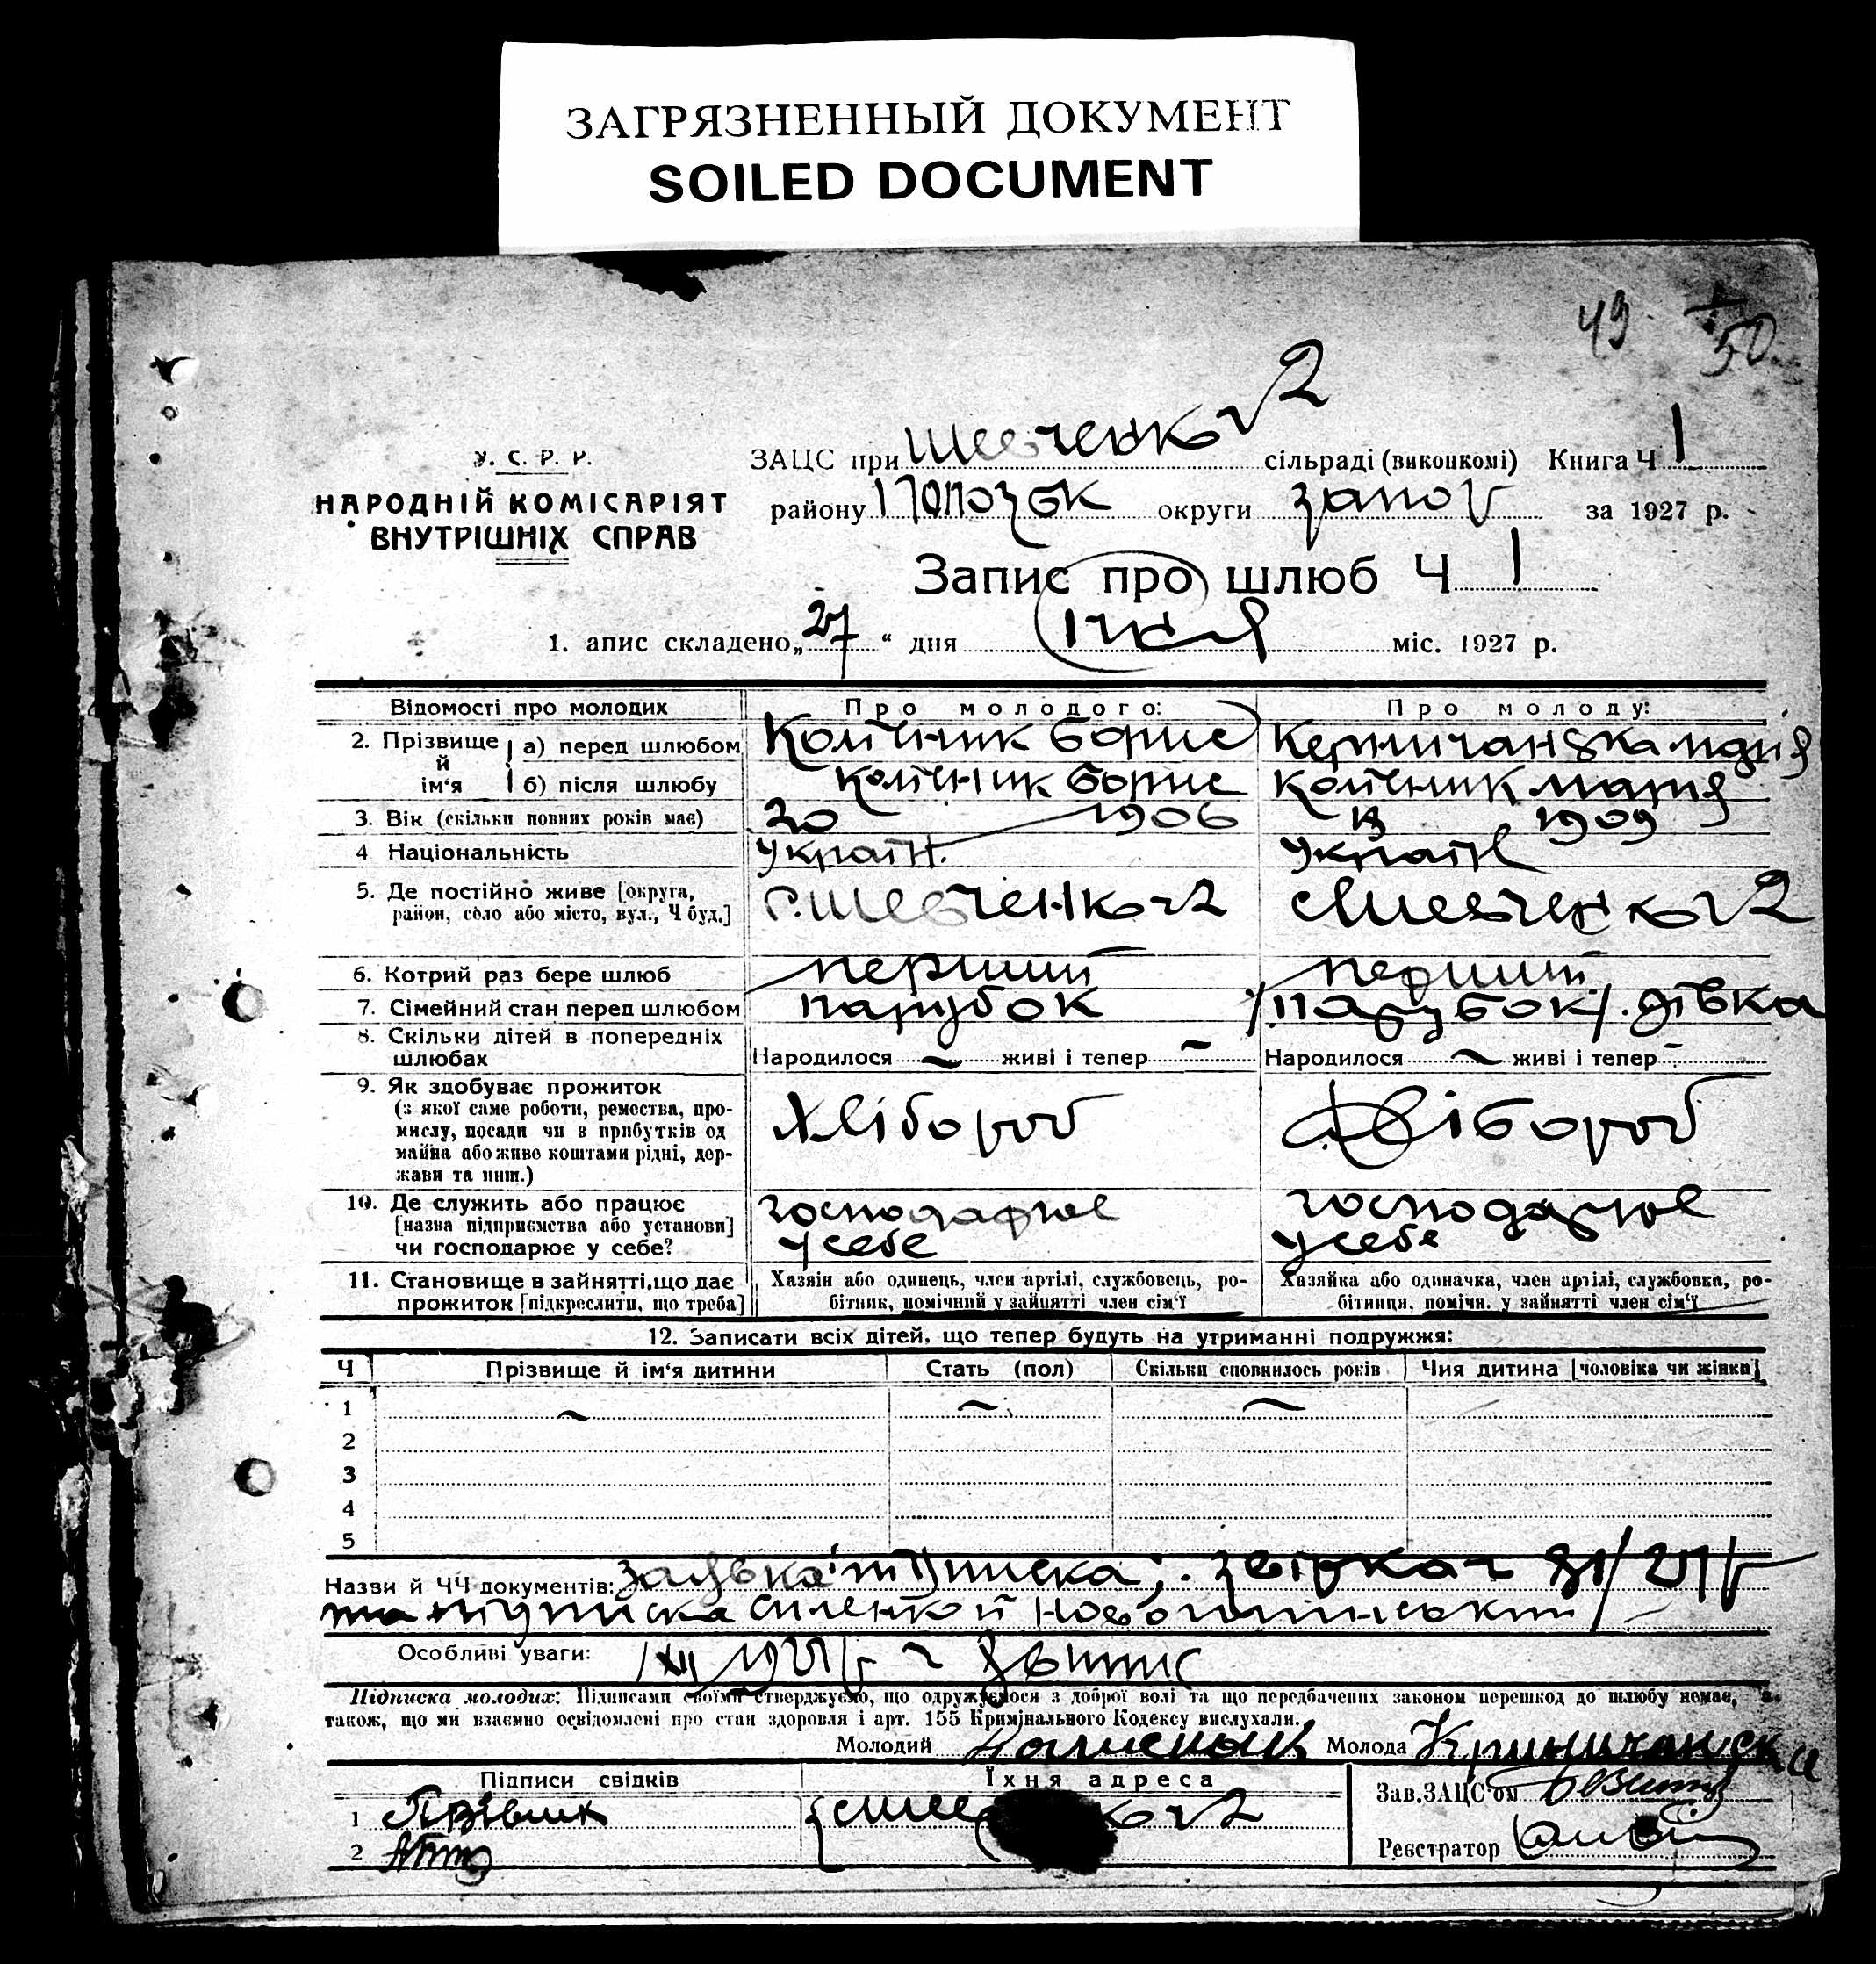 ЗАГРЯЗНЕННЫЙ ДОКУМЕНТ
SOILED DOCUMENT
49 50
У. С. Р. Р.
НАРОДНІЙ КОМІСАРІЯТ
ВНУТРІШНІХ СПРАВ
ЗАЦС при Шевченко г2 сільраді (виконкомі) Книга Ч 1
району округи Запор за 1927 р.
Запис про шлюб Ч 1
1. апис складено „27“ дня міс. 1927 р.
Відомості про молодих Про молодого: Про молоду:
2. Прізвище й ім‘я а) перед шлюбом Колісник Борис
б) після шлюбу Колісник Борис Колісник Марія
3. Вік (скільки повних років має) 20 1906 1909
4 Національність Україн. Україн
5. Де постійно живе [округа, район, село або місто, вул., Ч буд.] с. Шевченко г2 с Шевченко г2
6. Котрий раз бере шлюб перший перший
7. Сімейний стан перед шлюбом парубок /парубок/. дівка
8. Скільки дітей в попередніх шлюбах Народилося ~ живі і тепер ~ Народилося ~ живі і тепер -
9. Як здобуває прожиток Хлібороб Хлібороб
(з якої саме роботи, ремества, про-
мислу, посади чи з прибутків од
майна або живе коштами рідні, дер-
жави та инш.)
10. Де служить або працює господарює господарює
[назва підприємства або установи] у себе у себе
чи господарює у себе?
11. Становище в зайнятті, що дає Хазяін або одинець, член артілі, службовець, ро- Хазяйка або одиначка, член артілі, службовка, ро-
прожиток [підкреслити, що треба] бітник, помічний у зайнятті член сім‘ї бітниця, помічн. у зайнятті член сім‘ї
12. Записати всіх дітей, що тепер будуть на утриманні подружжя:
Ч Прізвище й ім‘я дитини Стать (пол) Скільки сповнилось років Чия дитина [чоловіка чи жінки]
1 ~ ~ ~
2
3
4
5
Назви й ЧЧ документів:
Особливі уваги:
Підписка молодих: Підписами своїми стверджуємо, що одружуємося з доброї волі та що передбачених законом перешкод до шлюбу немає, а
також, що ми взаємно освідомлені про стан здоровля і арт. 155 Кримінального Кодексу вислухали.
Молодий Колісник Молода Криничанска
Підписи свідків Їхня адреса Зав. ЗАЦС‘ом
1
2 Реєстратор